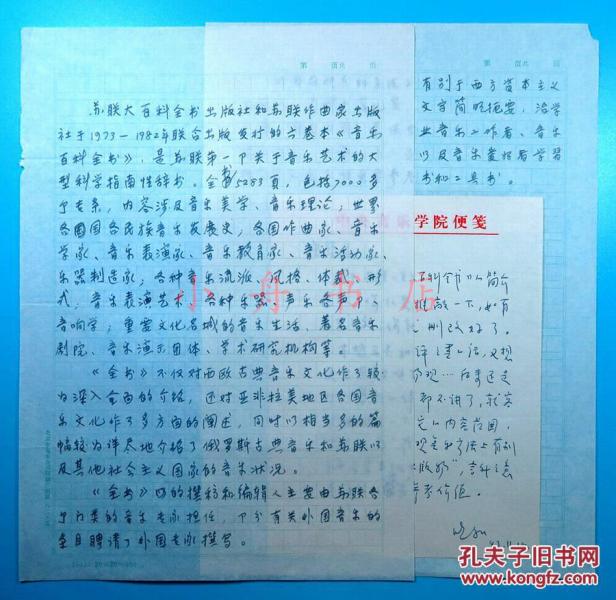 第 页共 页
苏联大百科全书出版社和苏联作曲家出版
社于1973—1982年联合出版发行的六卷本《音乐
百科全书》，是苏联第一个关于音乐艺术的大
型科学指南性辞书。全书5283页，包括7000多
个专条，内容涉及音乐美学、音乐理论；世界
各国民族音乐发展史，各国作曲家、音乐
学家、音乐表演家、音乐教育家、音乐活动家、
乐器制造家；各种音乐流派、风格、体裁、形
式，音乐表演艺术，各种乐器、声乐
音响学；重要文化名城的音乐生活、著名音乐
剧院、音乐演出团体、学术研究机构等
《全书》不仅对西欧古典音乐文化作了较
为深入全面的介绍，还对亚非拉美地区各国音
乐文化作了多方面的阐述，同时以相当多的篇
幅较为详尽地介绍了俄罗斯古典音乐和苏联以
及其他社会主义国家的音乐状况。
《全书》的撰稿和编辑人主要由苏联各
个门类的音乐专家担任，部分有关外国音乐的
条目聘请了外国专家撰写。
第 页共 页
有别于西方资本主义
文字简明扼要，治学
业音乐工作者、音乐
以及音乐爱好者学习
书和工具书。
学院便笺
百科全书》的简介
一下，如有
删改好了。
都不讲了，
内容范围，
有别
参考价值。
小舟书店
孔夫子旧书网